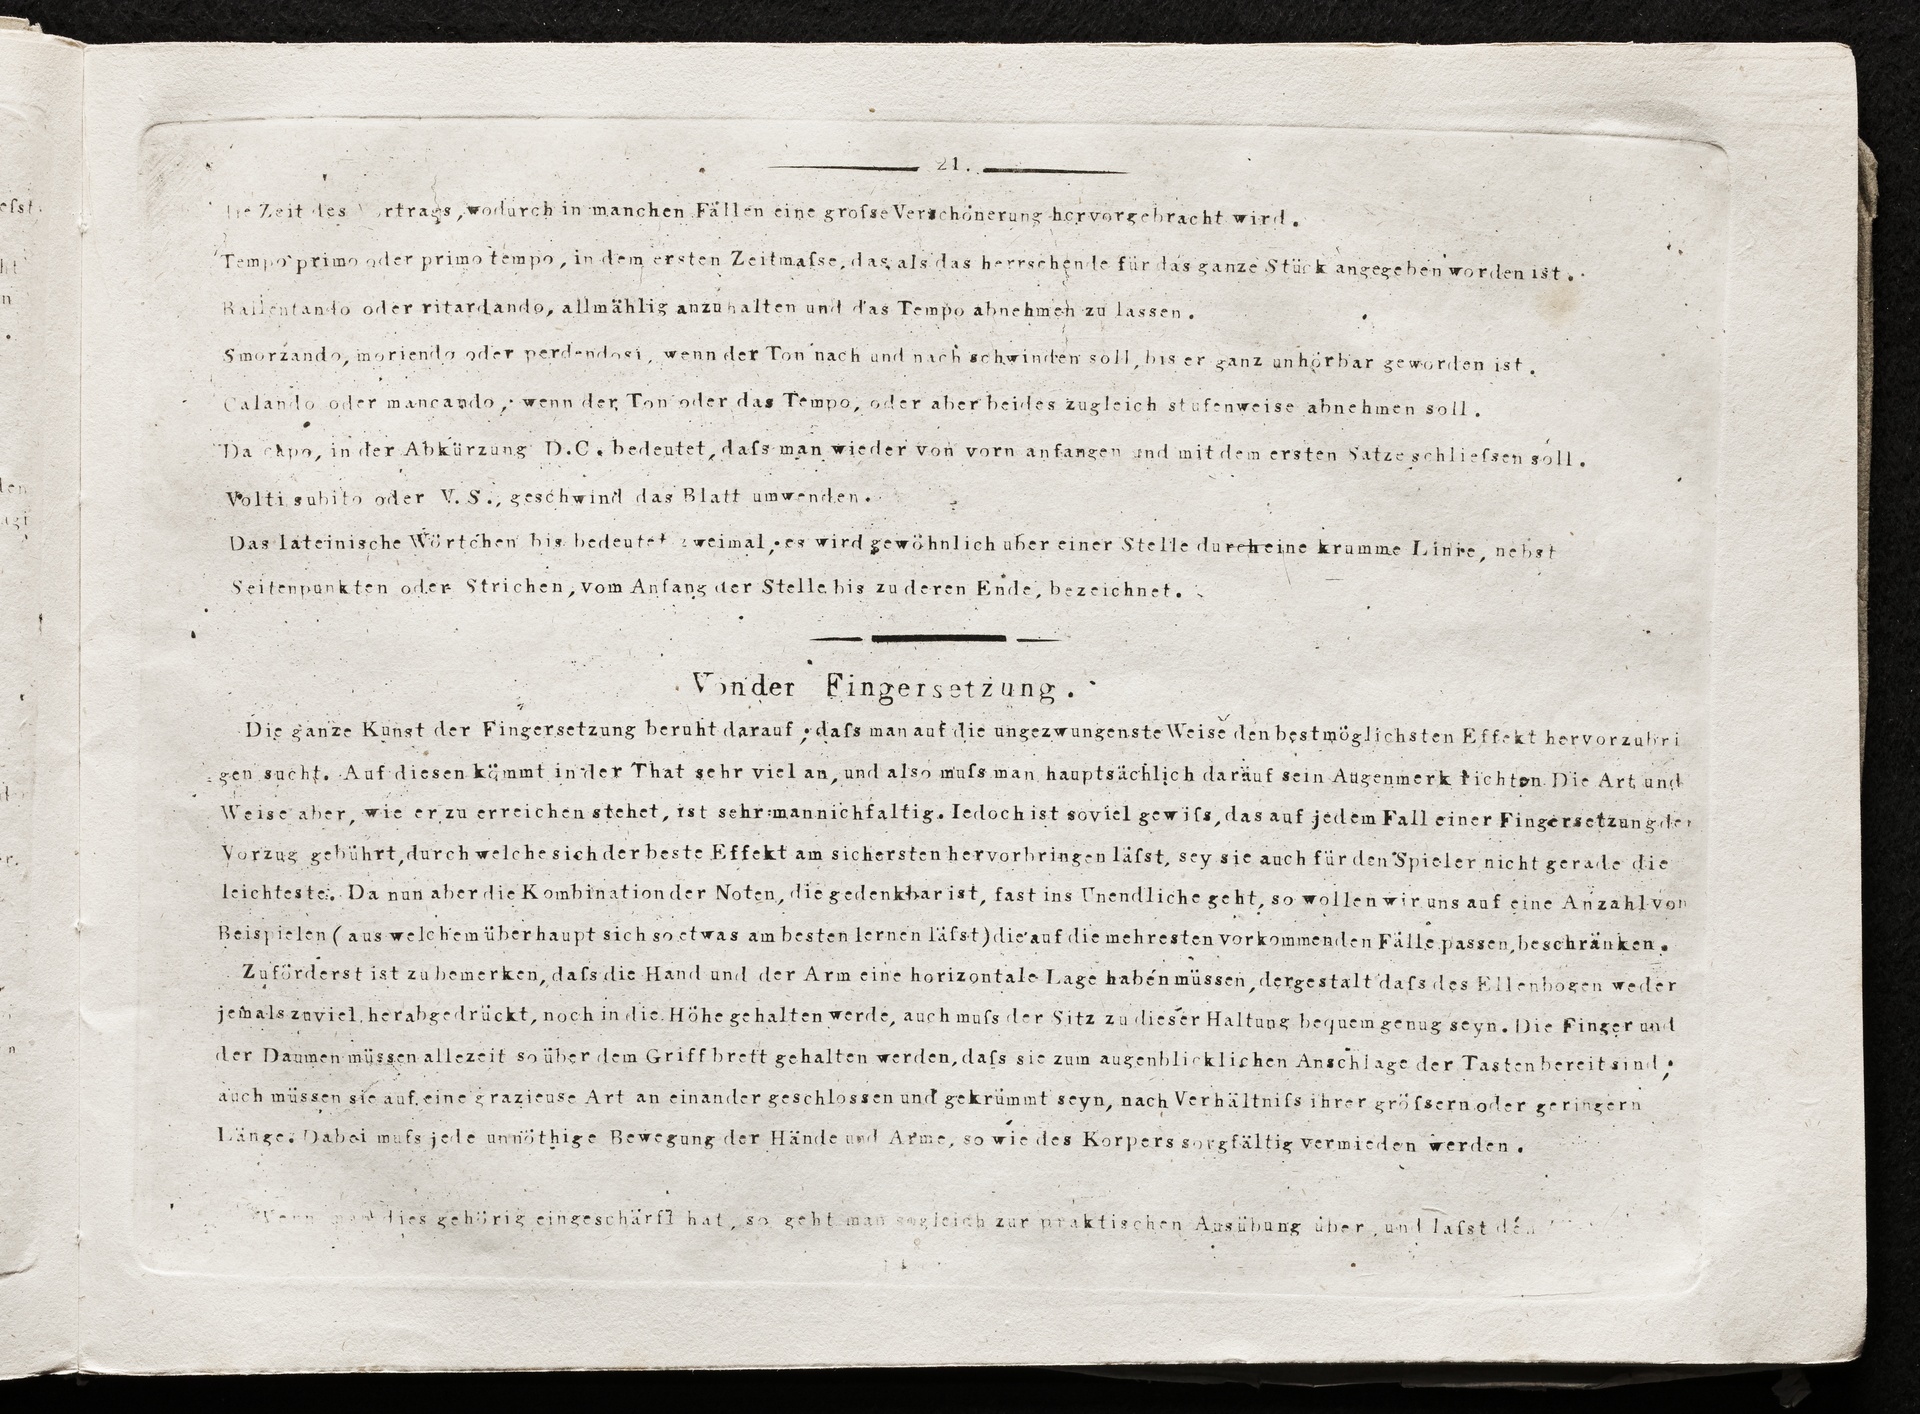 21.
die Zeit des Vortrags, wodurch in manchen Fällen eine groſse Verschönerung hervorgebracht wird.
Tempo primo oder primo tempo, in dem ersten Zeitmaſse, das als das herrschende für das ganze Stück angegeben worden ist.
Rallentando oder ritardando, allmählig anzuhalten und das Tempo abnehmen zu lassen.
Smorzando, moriendo oder perdendosi, wenn der Ton nach und nach schwinden soll, bis er ganz unhörbar geworden ist.
Calando oder mancando, wenn der Ton oder das Tempo, oder aber beides zugleich stufenweise abnehmen soll.
Da capo, in der Abkürzung D.C. bedeutet, daſs man wieder von vorn anfangen und mit dem ersten Satze schlieſsen soll.
Volti subito oder V.S., geschwind das Blatt umwenden.
Das lateinische Wörtchen bis bedeutet zweimal, es wird gewöhnlich über einer Stelle durch eine krumme Linie, nebst
Seitenpunkten oder Strichen, vom Anfang der Stelle bis zu deren Ende, bezeichnet.
Von der Fingersetzung.
Die ganze Kunst der Fingersetzung beruht darauf, daſs man auf die ungezwungenste Weise den bestmöglichsten Effekt hervorzubri
gen sucht. Auf diesen kömmt in der That sehr viel an, und also muſs man hauptsächlich darauf sein Augenmerk richten. Die Art und
Weise aber, wie er zu erreichen stehet, ist sehr mannichfaltig. Iedoch ist soviel gewiſs, das auf jedem Fall einer Fingersetzung der
Vorzug gebührt, durch welche sich der beste Effekt am sichersten hervorbringen läſst, sey sie auch für den Spieler nicht gerade die
leichteste. Da nun aber die Kombination der Noten, die gedenkbar ist, fast ins Unendliche geht, so wollen wir uns auf eine Anzahl von
Beispielen (aus welchem überhaupt sich so etwas am besten lernen läſst) die auf die mehresten vorkommenden Fälle passen, beschränken.
Zuförderst ist zu bemerken, daſs die Hand und der Arm eine horizontale Lage haben müssen, dergestalt daſs des Ellenbogen weder
jemals zuviel herabgedrückt, noch in die Höhe gehalten werde, auch muſs der Sitz zu dieser Haltung bequem genug seyn. Die Finger und
der Daumen müssen allezeit so über dem Griffbrett gehalten werden, daſs sie zum augenblicklichen Anschlage der Tasten bereit sind;
auch müssen sie auf eine grazieuse Art an einander geschlossen und gekrümmt seyn, nach Verhältniſs ihrer gröſsern oder geringern
Länge. Dabei muſs jede unnöthige Bewegung der Hände und Arme, so wie des Korpers sorgfältig vermieden werden.
Wenn man dies gehörig eingeschärft hat, so geht man sogleich zur praktischen Ausübung über, und laſst den